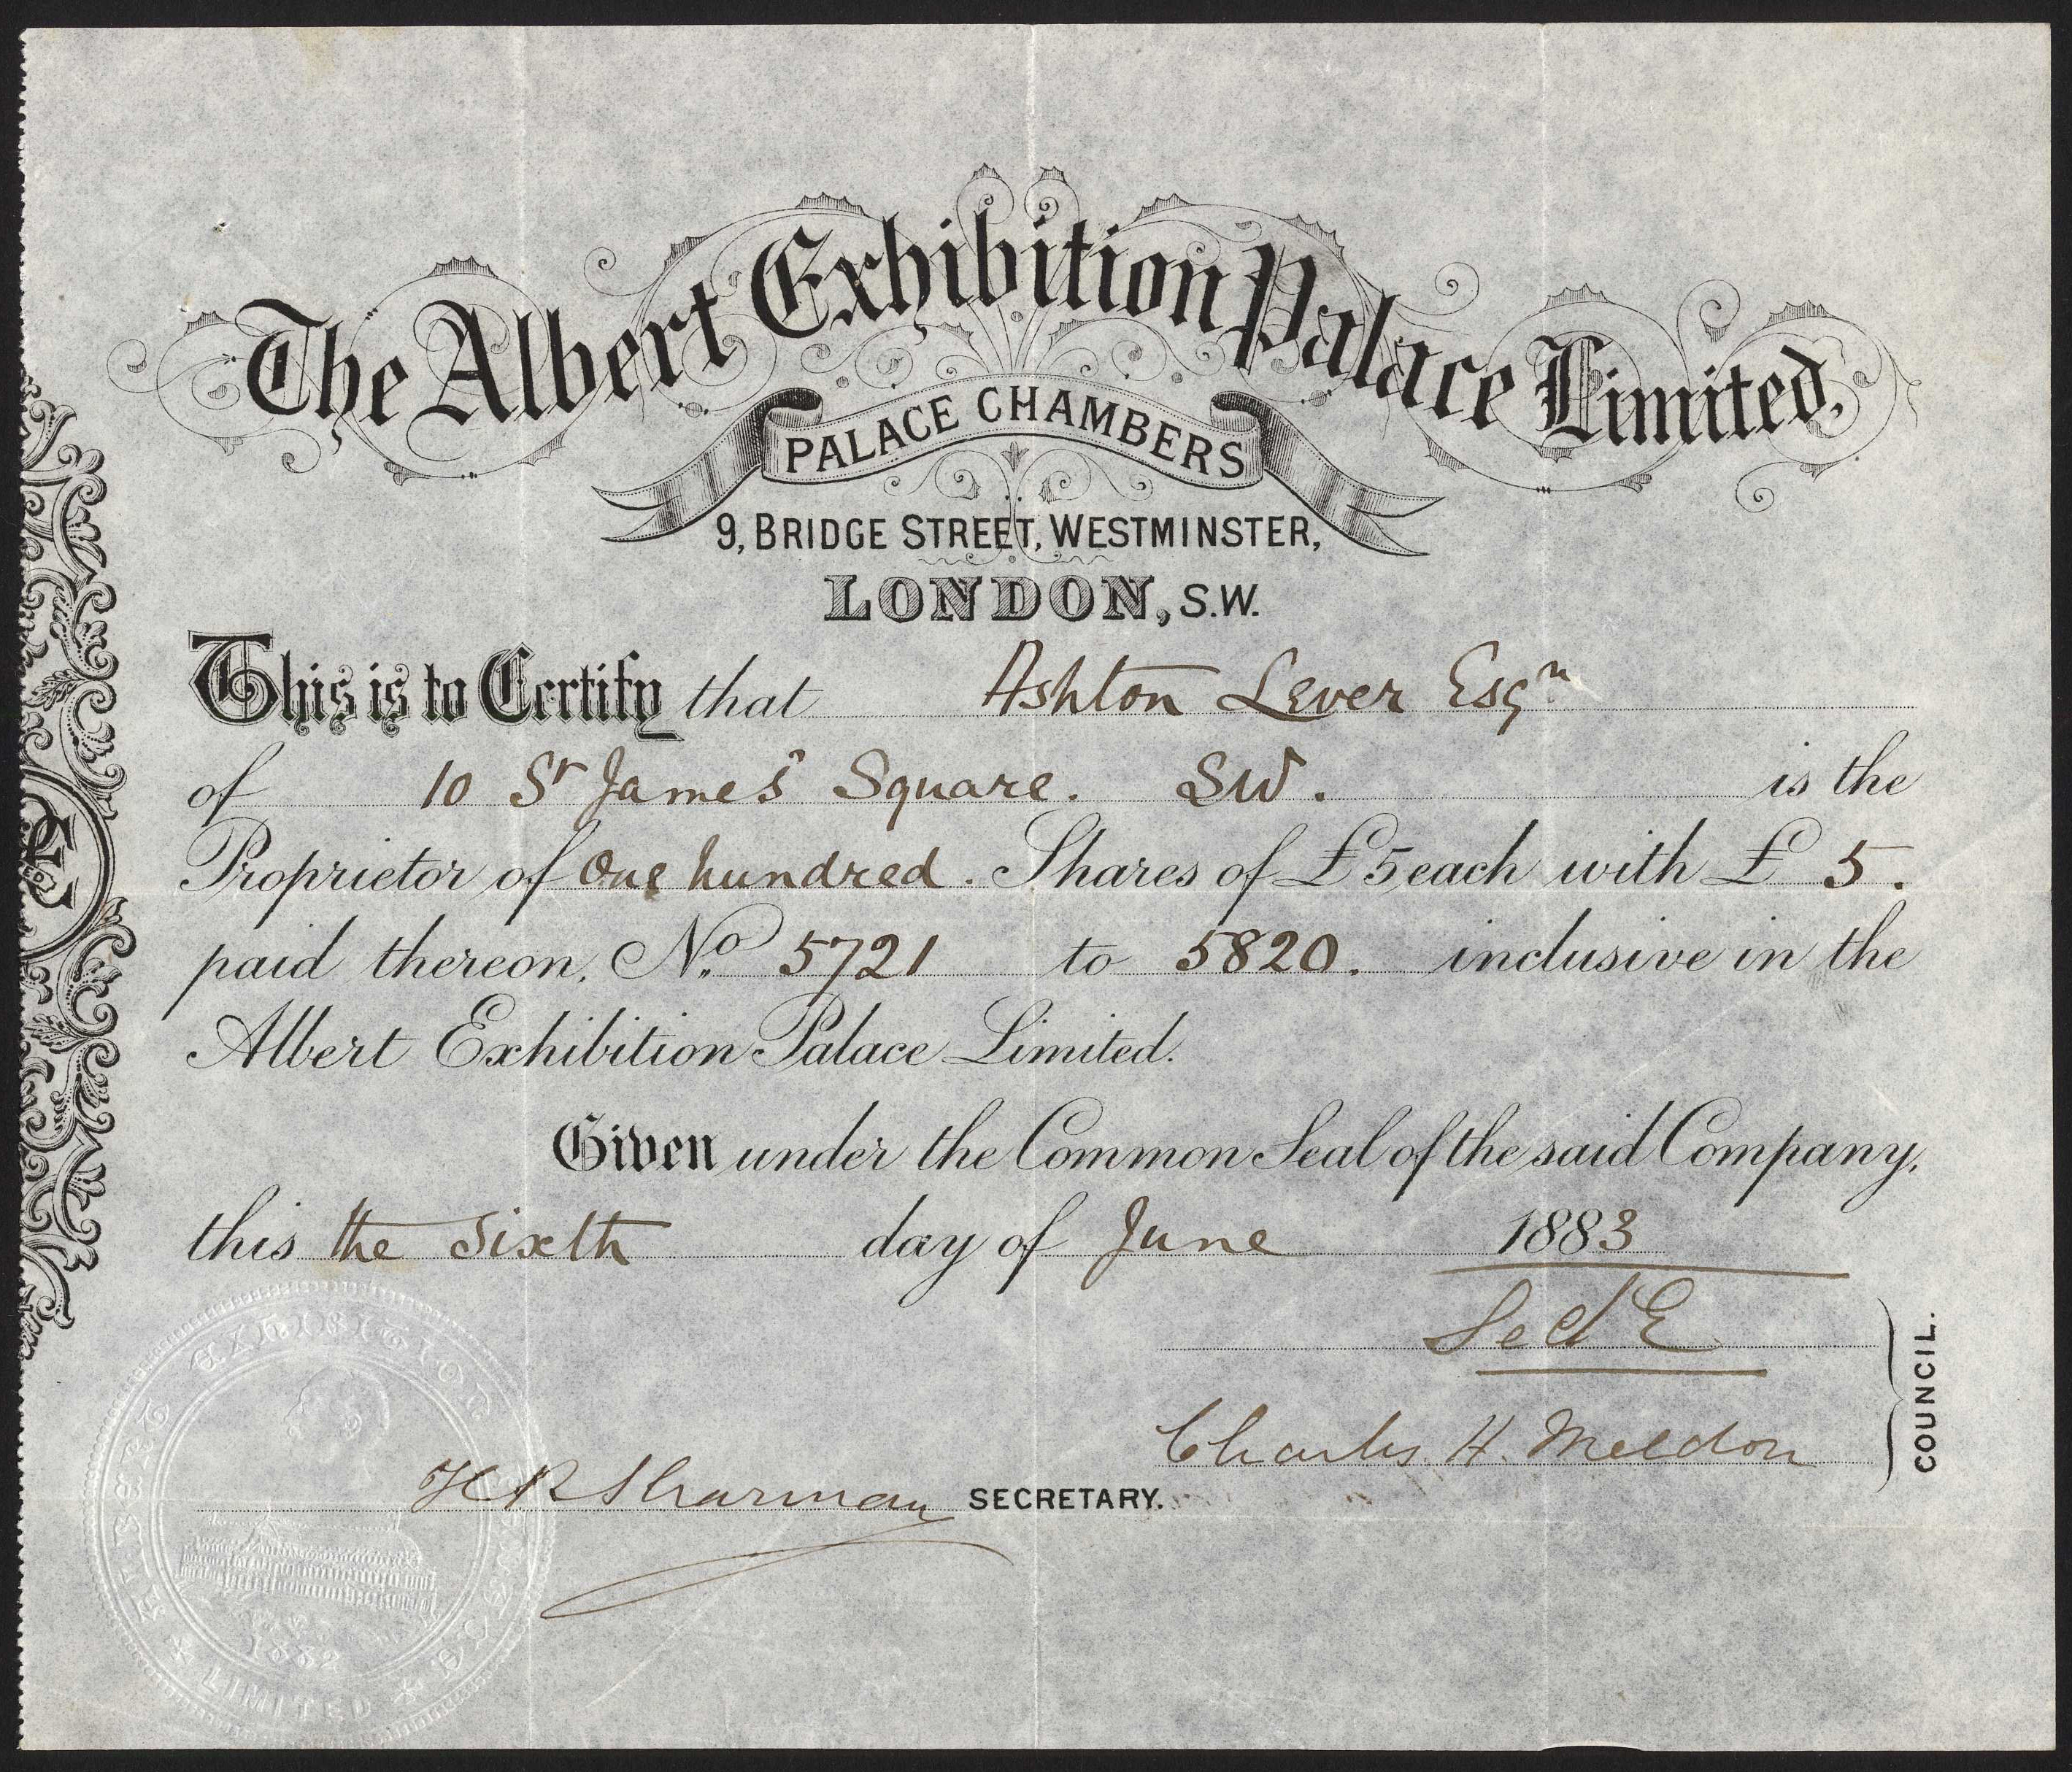 The Albert Exhibition Palace Limited.
PALACE CHAMBERS
9, BRIDGE STREET, WESTMINSTER,
LONDON, S.W.
This is to Certify that Ashton Lever Esqr
of 10 St James' Square. SW. is the
Proprietor of One hundred. Shares of £5 each with £ 5.
paid thereon, No. 5721 to 5820. inclusive in the
Albert Exhibition Palace Limited.
Given under the Common Seal of the said Company,
this the Sixth day of June 1883
COUNCIL.
Charles H. Meldon
H R Sharman SECRETARY.
ALBERT EXHIBITION PALACE
1882
LIMITED